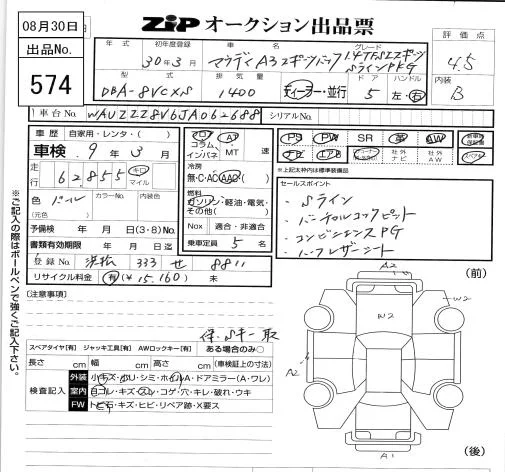 08月30日
ZIP オークション出品票
出品No.
574
年式 初年度登録 車名 グレード 評価点
30年3月 アウディ A3スポーツバック 1.4TFSIスポーツ SラインPKG 4.5
型式 排気量 ドア ハンドル 内装
DBA-8VCXS 1400 ディーラー・並行 5 左・右 B
車台No. WAUZZZ8V6JA062688 シリアルNo.
車歴 自家用・レンタ・( )
車検 9年3月
走行 62,855 キロ マイル
フロア コラム インパネ A MT 速
冷房
無・C・AC・AAC
燃料
ガソリン・軽油・電気・その他( )
色 パール カラーNo. 色No.
(元色 )
Nox 適合・非適合
予備検 年 月 日(3・8)No.
書類有効期限 年 月 日迄
乗車定員 5 名
登録No. 浜松 333 せ 8811
リサイクル料金 有(¥15,160) 未
PS PW SR 革 AW 新車時保証書
ナビ エアB 社外ナビ 社外AW 取説
※上記太枠内は標準装備品
セールスポイント
・Sライン
・バーチャルコックピット
・コンビニエンスPG
・ハーフレザーシート
(注意事項)
保、Sキー 取
スペアタイヤ[有] ジャッキ工具[有] AWロックキー[有] ある場合のみ○
長さ cm 幅 cm 高さ cm (車検証上の寸法)
検査記入
外装 小キズ・ホリ・シミ・ホイルA・ドアミラー(A・ワレ)
室内 ヨゴレ・キズ・スレ・コゲ・穴・キレ・破れ・ウキ
FW トビ石・キズ・ヒビ・リペア跡・X要ス
※ご記入の際はボールペンで強くご記入下さい。
(前)
A2
W2
W2
A2
A1
(後)